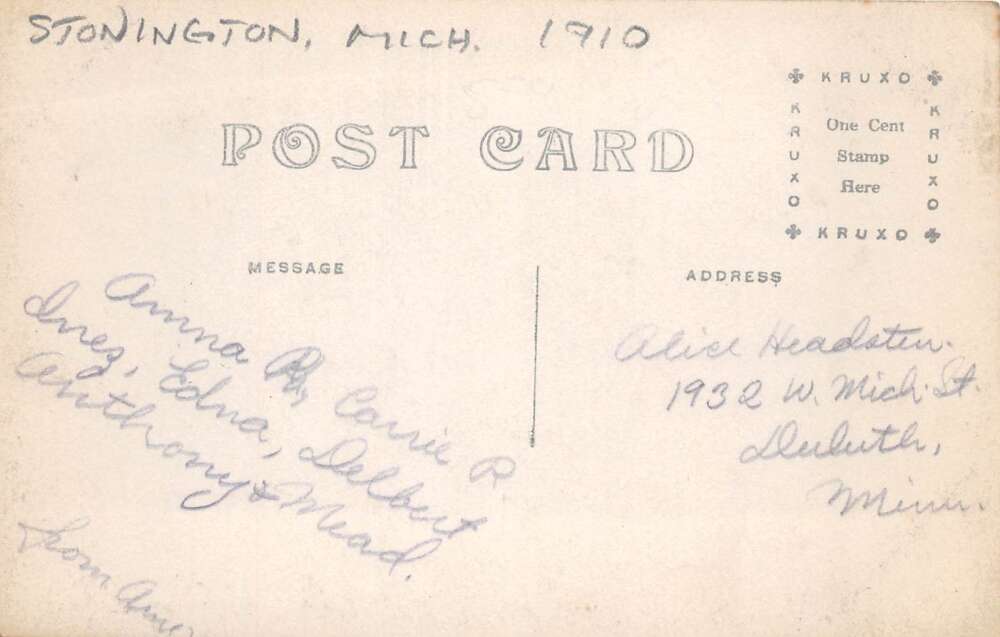 STONINGTON, MICH. 1910
POST CARD
KRUXO
KRUXO
KRUXO
One Cent
Stamp
Here
KRUXO
MESSAGE
Anna R, Carrie R
Inez, Edna, Delbert
Anthony & Mead.
From
ADDRESS
Alice Headsten.
1932 W. Mich. St.
Duluth,
Minn.